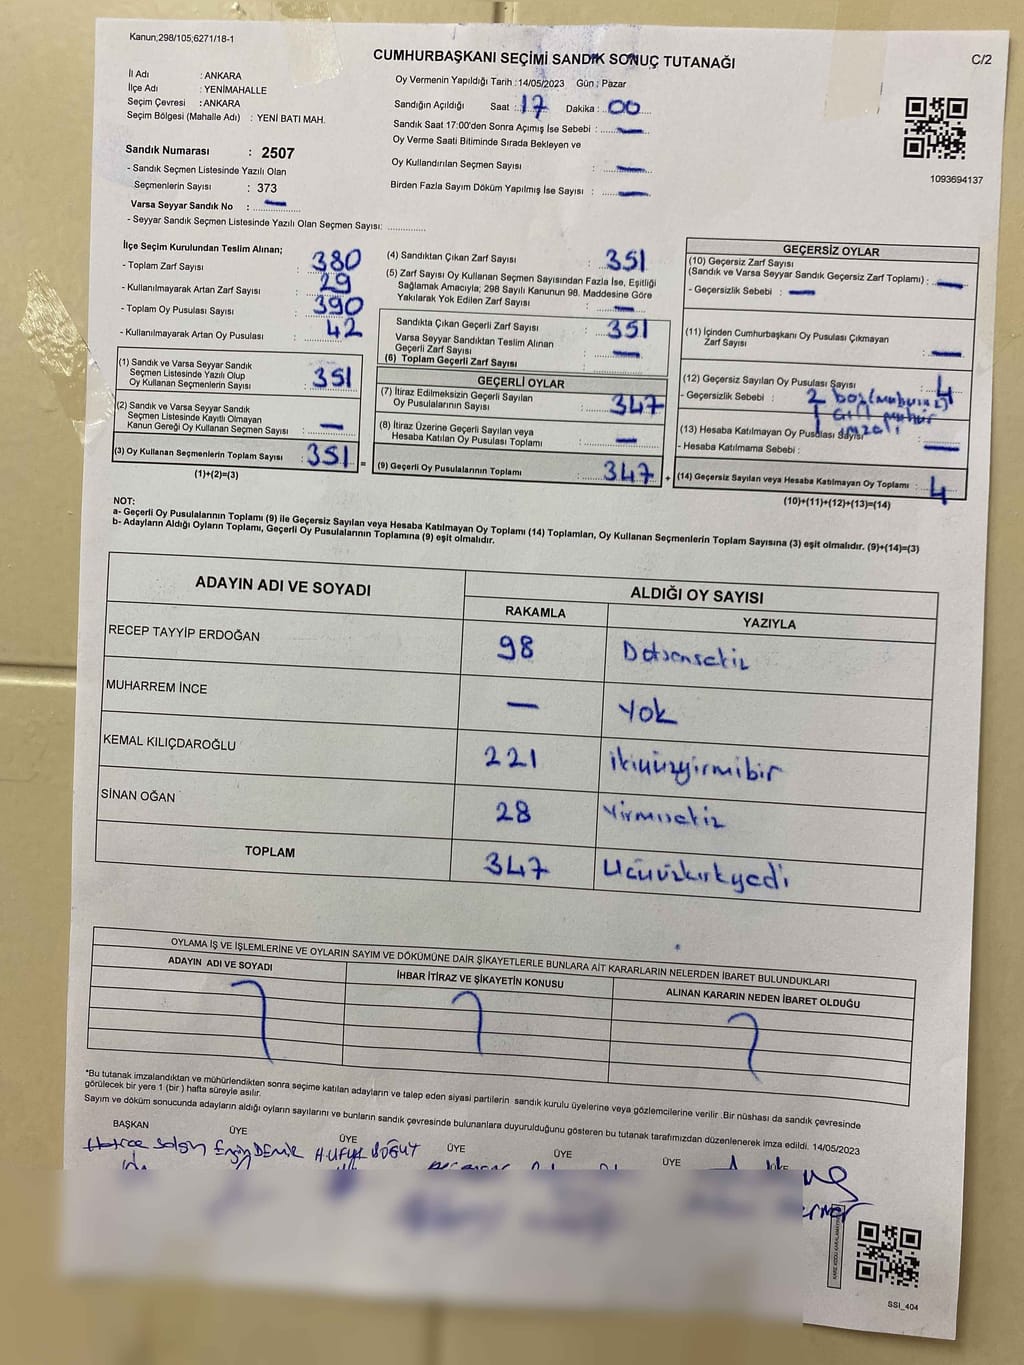 Kanun;298/105;6271/18-1
CUMHURBAŞKANI SEÇİMİ SANDIK SONUÇ TUTANAĞI
C/2
İl Adı : ANKARA
İlçe Adı : YENİMAHALLE
Seçim Çevresi : ANKARA
Seçim Bölgesi (Mahalle Adı) : YENİ BATI MAH.
Sandık Numarası : 2507
- Sandık Seçmen Listesinde Yazılı Olan
Seçmenlerin Sayısı : 373
Varsa Seyyar Sandık No : —
- Seyyar Sandık Seçmen Listesinde Yazılı Olan Seçmen Sayısı: ..............
Oy Vermenin Yapıldığı Tarih : 14/05/2023 Gün : Pazar
Sandığın Açıldığı Saat : 17 Dakika : 00
Sandık Saat 17:00'den Sonra Açımış İse Sebebi : —
Oy Verme Saati Bitiminde Sırada Bekleyen ve
Oy Kullandırılan Seçmen Sayısı : —
Birden Fazla Sayım Döküm Yapılmış İse Sayısı : —
1093694137
İlçe Seçim Kurulundan Teslim Alınan;
- Toplam Zarf Sayısı : 380
- Kullanılmayarak Artan Zarf Sayısı : 29
- Toplam Oy Pusulası Sayısı : 390
- Kullanılmayarak Artan Oy Pusulası : 42
(1) Sandık ve Varsa Seyyar Sandık
Seçmen Listesinde Yazılı Olup
Oy Kullanan Seçmenlerin Sayısı : 351
(2) Sandık ve Varsa Seyyar Sandık
Seçmen Listesinde Kayıtlı Olmayan
Kanun Gereği Oy Kullanan Seçmen Sayısı : —
(3) Oy Kullanan Seçmenlerin Toplam Sayısı : 351 =
(1)+(2)=(3)
(4) Sandıktan Çıkan Zarf Sayısı : 351
(5) Zarf Sayısı Oy Kullanan Seçmen Sayısından Fazla İse, Eşitliği
Sağlamak Amacıyla; 298 Sayılı Kanunun 98. Maddesine Göre
Yakılarak Yok Edilen Zarf Sayısı : —
Sandıkta Çıkan Geçerli Zarf Sayısı : 351
Varsa Seyyar Sandıktan Teslim Alınan
Geçerli Zarf Sayısı : —
(6) Toplam Geçerli Zarf Sayısı
GEÇERLİ OYLAR
(7) İtiraz Edilmeksizin Geçerli Sayılan
Oy Pusulalarının Sayısı : 347
(8) İtiraz Üzerine Geçerli Sayılan veya
Hesaba Katılan Oy Pusulası Toplamı : —
(9) Geçerli Oy Pusulalarının Toplamı : 347 +
GEÇERSİZ OYLAR
(10) Geçersiz Zarf Sayısı
(Sandık ve Varsa Seyyar Sandık Geçersiz Zarf Toplamı) : —
- Geçersizlik Sebebi : —
(11) İçinden Cumhurbaşkanı Oy Pusulası Çıkmayan
Zarf Sayısı : —
(12) Geçersiz Sayılan Oy Pusulası Sayısı : 4
- Geçersizlik Sebebi : 2 boş (mühürsüz)
1 çift mühür
1 imzalı
(13) Hesaba Katılmayan Oy Pusulası Sayısı
- Hesaba Katılmama Sebebi : —
(14) Geçersiz Sayılan veya Hesaba Katılmayan Oy Toplamı : 4
(10)+(11)+(12)+(13)=(14)
NOT:
a- Geçerli Oy Pusulalarının Toplamı (9) ile Geçersiz Sayılan veya Hesaba Katılmayan Oy Toplamı (14) Toplamları, Oy Kullanan Seçmenlerin Toplam Sayısına (3) eşit olmalıdır. (9)+(14)=(3)
b- Adayların Aldığı Oyların Toplamı, Geçerli Oy Pusulalarının Toplamına (9) eşit olmalıdır.
ADAYIN ADI VE SOYADI ALDIĞI OY SAYISI
RAKAMLA YAZIYLA
RECEP TAYYİP ERDOĞAN 98 Doksansekiz
MUHARREM İNCE — Yok
KEMAL KILIÇDAROĞLU 221 ikiyüzyirmibir
SİNAN OĞAN 28 Yirmisekiz
TOPLAM 347 Üçyüzkırkyedi
OYLAMA İŞ VE İŞLEMLERİNE VE OYLARIN SAYIM VE DÖKÜMÜNE DAİR ŞİKAYETLERLE BUNLARA AİT KARARLARIN NELERDEN İBARET BULUNDUKLARI
ADAYIN ADI VE SOYADI İHBAR İTİRAZ VE ŞİKAYETİN KONUSU ALINAN KARARIN NEDEN İBARET OLDUĞU
*Bu tutanak imzalandıktan ve mühürlendikten sonra seçime katılan adayların ve talep eden siyasi partilerin sandık kurulu üyelerine veya gözlemcilerine verilir .Bir nüshası da sandık çevresinde
görülecek bir yere 1 (bir ) hafta süreyle asılır.
Sayım ve döküm sonucunda adayların aldığı oyların sayılarını ve bunların sandık çevresinde bulunanlara duyurulduğunu gösteren bu tutanak tarafımızdan düzenlenerek imza edildi. 14/05/2023
BAŞKAN ÜYE ÜYE ÜYE ÜYE ÜYE
Engin DEMİR
SSI_404